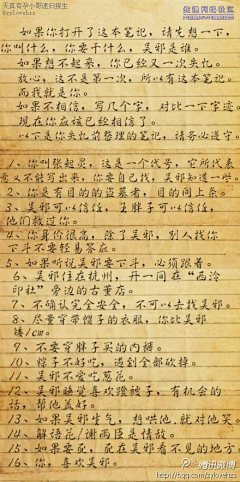 天真有孕小哥速归接生
@zylovehzs
如果你打开了这本笔记，请先想一下，
你叫什么，你要干什么，吴邪是谁。
如果想不起来，你已经又一次失忆。
放心，这不是第一次，所以有这本笔记。
而我就是你。
如果不相信，写几个字，对比一下字迹。
现在你应该已经相信了。
以下是你失忆前整理的笔记，请务必遵守。
1、你叫张起灵，这是一个代号，它所代表
意义不能写出来，你要自己找，吴邪知道一些。
2、你是有目的的盗墓者，目的同上条。
3、吴邪可以信任，王胖子可以信任，
他们救过你。
4、你身价很高，除了吴邪，别人找你
下斗不要轻易答应。
5、如果听说吴邪要下斗，必须跟着。
6、吴邪住在杭州，开一间在“西泠
印社”旁边的古董店。
7、不确认完全安全，不可以去找吴邪。
8、尽量穿带帽子的衣服，你比吴邪
矮1cm。
9、不要穿胖子买的内裤。
10、粽子不好吃，遇到全部砍掉。
11、吴邪不爱吃葱花。
12、吴邪睡觉喜欢蹬被子，有机会的
话，帮他盖好。
13、如果吴邪生气，想哄他，就对他笑。
14、解语花/谢雨臣是情敌。
15、如果要死，死在吴邪看不见的地方。
16、你，喜欢吴邪。
腾讯微博
http://t.qq.com/zylovehzs